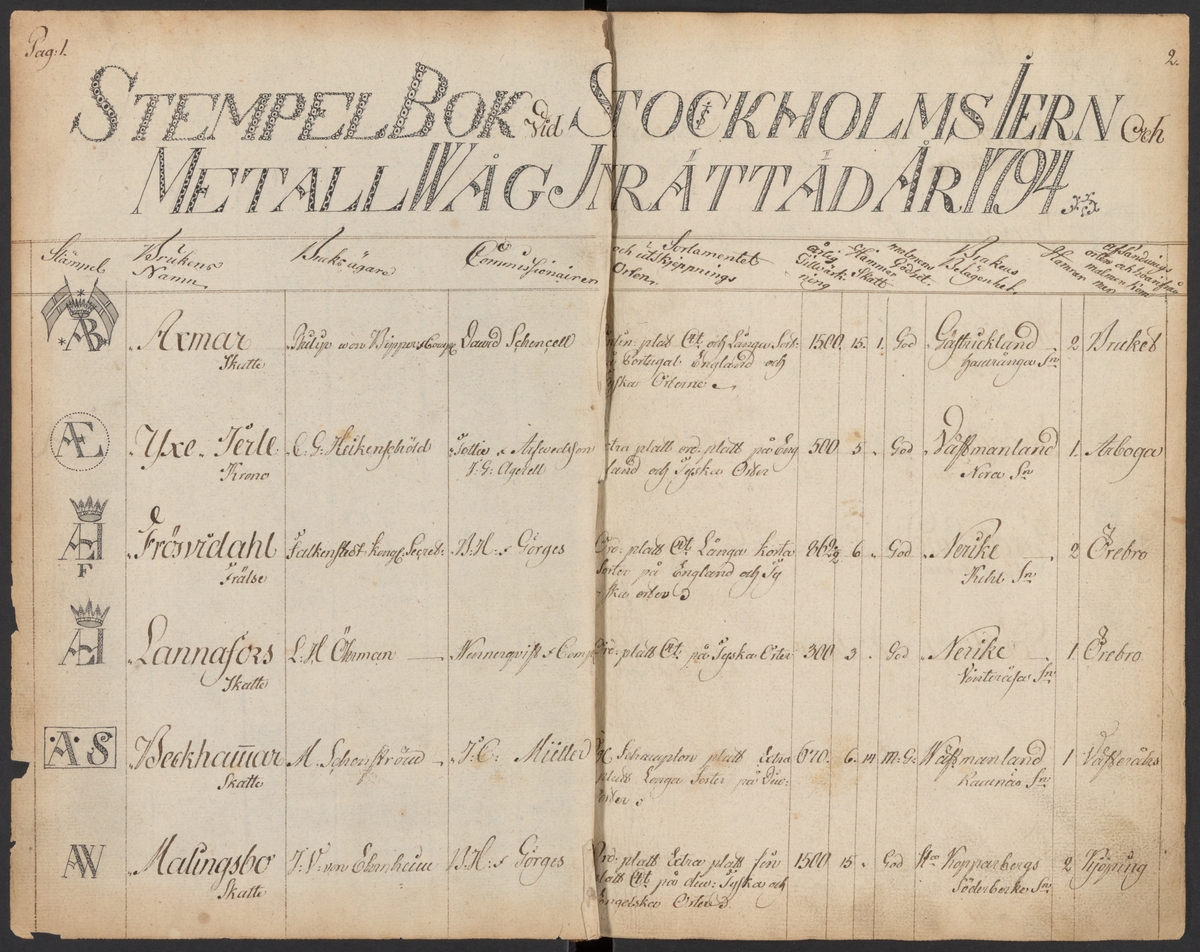 Pag: 1.
2.
STEMPELBOK vid STOCKHOLMS IERN och
METALLWÅG INRÄTTAD ÅR 1794
Stämpel
Brukens
Namn
Bruksägare
Commissionairen
och Sortamentet
och utskippnings
Orten
årlig
Tillwärk-
ning
Hammar
Skatt
malmens
Godhet
Brukens
Belägenhet
Hamrar
afsändnings
orten och hwarifrån
malmen kom
mer
AB
Axmar
Skatte
Philip von
David Schencell
platt och Långa Sort:
Portugal England och
yska Orterne
1500. 15. 1. God
Gästrickland
Hamrånge Sn
2 Bruket
Æ
Yxe Jerle
Krono
C. G. Heikenschöld
Tottie & Arfwedson
V: G: Agerell
xtra platt ord. platt på Eng
land och Tyska Orter
500 5 . God
Västmanland
Nora Sn
1. Arboga
ÆH
F
Frösvidahl
Frälse
Falkenstedt Kongl. Secret:
B. H. & Görges
Ord: platt Långa korta
Sorter på England och Ty
ska orter
6 . God
Nerike
Kihl Sn
2 Örebro
ÆH
Lannafors
Skatte
L: H Öhrman
Wennerqvist & Comp
Ord: platt på Tyska Orter
300 3 . God
Nerike
Vinteråsa Sn
1 Örebro
·A· S
Beckhammar
Skatte
M. Schenström
J: C: Müller
platt Extra
platt Longa Sorter på Div:
orter
670. 6. M: G:
Wästmanland
Ramnäs Sn
1 Västeråhs
AW
Malingsbo
Skatte
B. H: & Görges
Ord. platt Extra platt fin
platt på diu: Tyska och
Engelska Orter
1500 15 . God
Kopparbergs
Söderberke Sn
2 Kjöping